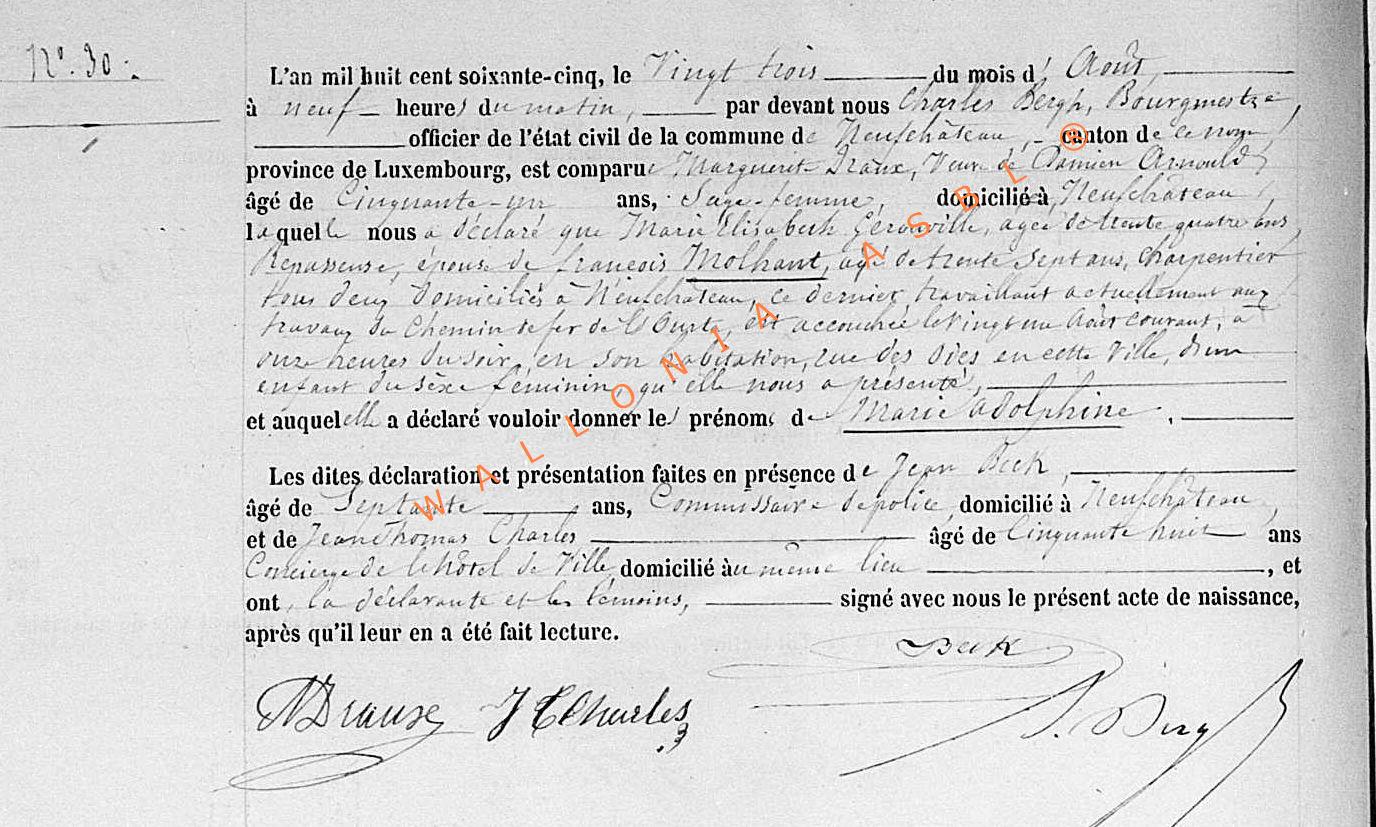 N° 30.
L'an mil huit cent soixante-cinq, le Vingt trois du mois d' Août,
à neuf heures du matin, par devant nous Charles Bergh, Bourgmestre,
officier de l'état civil de la commune de Neufchâteau, canton de ce nom,
province de Luxembourg, est comparue Marguerite Draux, Veuve de Damien Arnould,
âgé de Cinquante-un ans, Sage-femme, domicilié à Neufchâteau,
laquelle nous a déclaré que Marie Elisabeth Gérouville, agée de trente quatre ans,
Repasseuse, épouse de françois Molhant, agé de trente Sept ans, Charpentier
tous deux domiciliés à Neufchâteau, ce dernier travaillant actuellement aux
travaux du Chemin de fer de l'Ourte, est accouchée le Vingt un Août courant, à
onze heures du soir, en son habitation, rue des Oies en cette Ville, d'un
enfant du sèxe féminin, qu'elle nous a présenté,
et auquel elle a déclaré vouloir donner les prénoms de Marie Adolphine.
Les dites déclaration et présentation faites en présence de Jean Beck,
âgé de Septante ans, Commissaire de police, domicilié à Neufchâteau,
et de Jean Thomas Charles âgé de Cinquante huit ans
Concierge de l'hôtel de Ville, domicilié au même lieu, et
ont, la déclarante et les témoins, signé avec nous le présent acte de naissance,
après qu'il leur en a été fait lecture.
Beck
MDrause JTCharles
WALLONIA ASBL ®